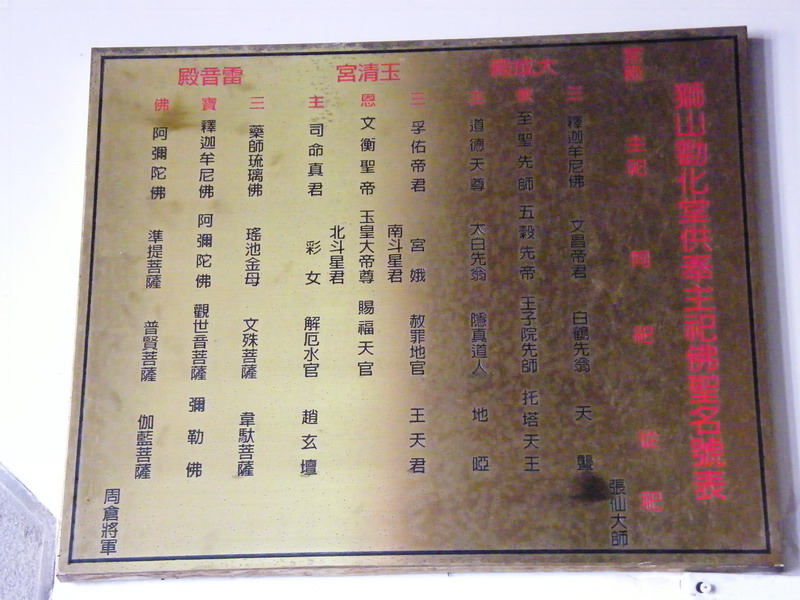 獅山勸化堂供奉主祀佛聖名號表
主祀 同祀 從祀
張仙大師
大成殿
三 釋迦牟尼佛 文昌帝君 白鶴先翁 天聾
至聖先師 五穀先帝 王子院先師 托塔天王
主 道德天尊 太白先翁 隱真道人 地啞
玉清宮
三 孚佑帝君 宮娥 赦罪地官 王天君
南斗星君
恩 文衡聖帝 玉皇大帝尊 賜福天官
北斗星君
主 司命真君 彩女 解厄水官 趙玄壇
雷音殿
三 藥師琉璃佛 瑤池金母 文殊菩薩 韋馱菩薩
寶 釋迦牟尼佛 阿彌陀佛 觀世音菩薩 彌勒佛
佛 阿彌陀佛 準提菩薩 普賢菩薩 伽藍菩薩
周倉將軍